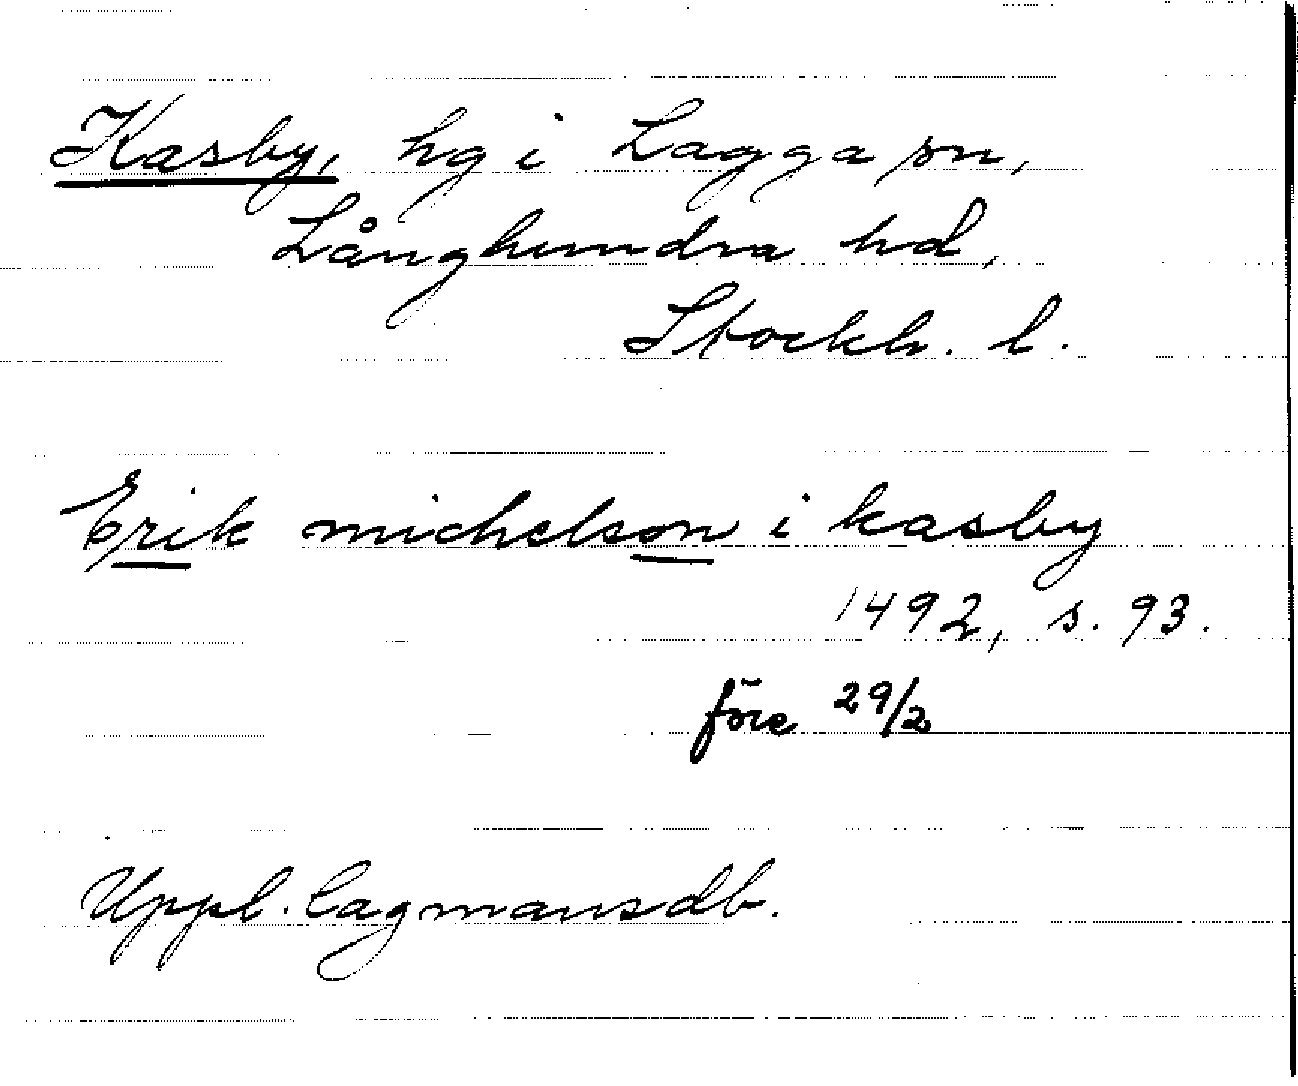 Kasby, hg i Lagga sn,
Långhundra hd,
Stockh. l.
Erik michelson i kasby
1492, s. 93.
före 29/2
Uppl. lagmansdb.